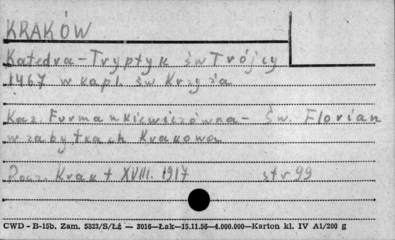 KRAKÓW
Katedra - Tryptyk św Trójcy
1467 w kapl. św Krzyża
Kaz. Furmankiewiczówna - Św. Florian
w zabytkach Krakowa
Rocz. Krak t XVIII. 1917 str 99
CWD - B-15b. Zam. 5823/S/Łź — 3016—Łak—15.11.56—4.000.000—Karton kl. IV A1/200 g